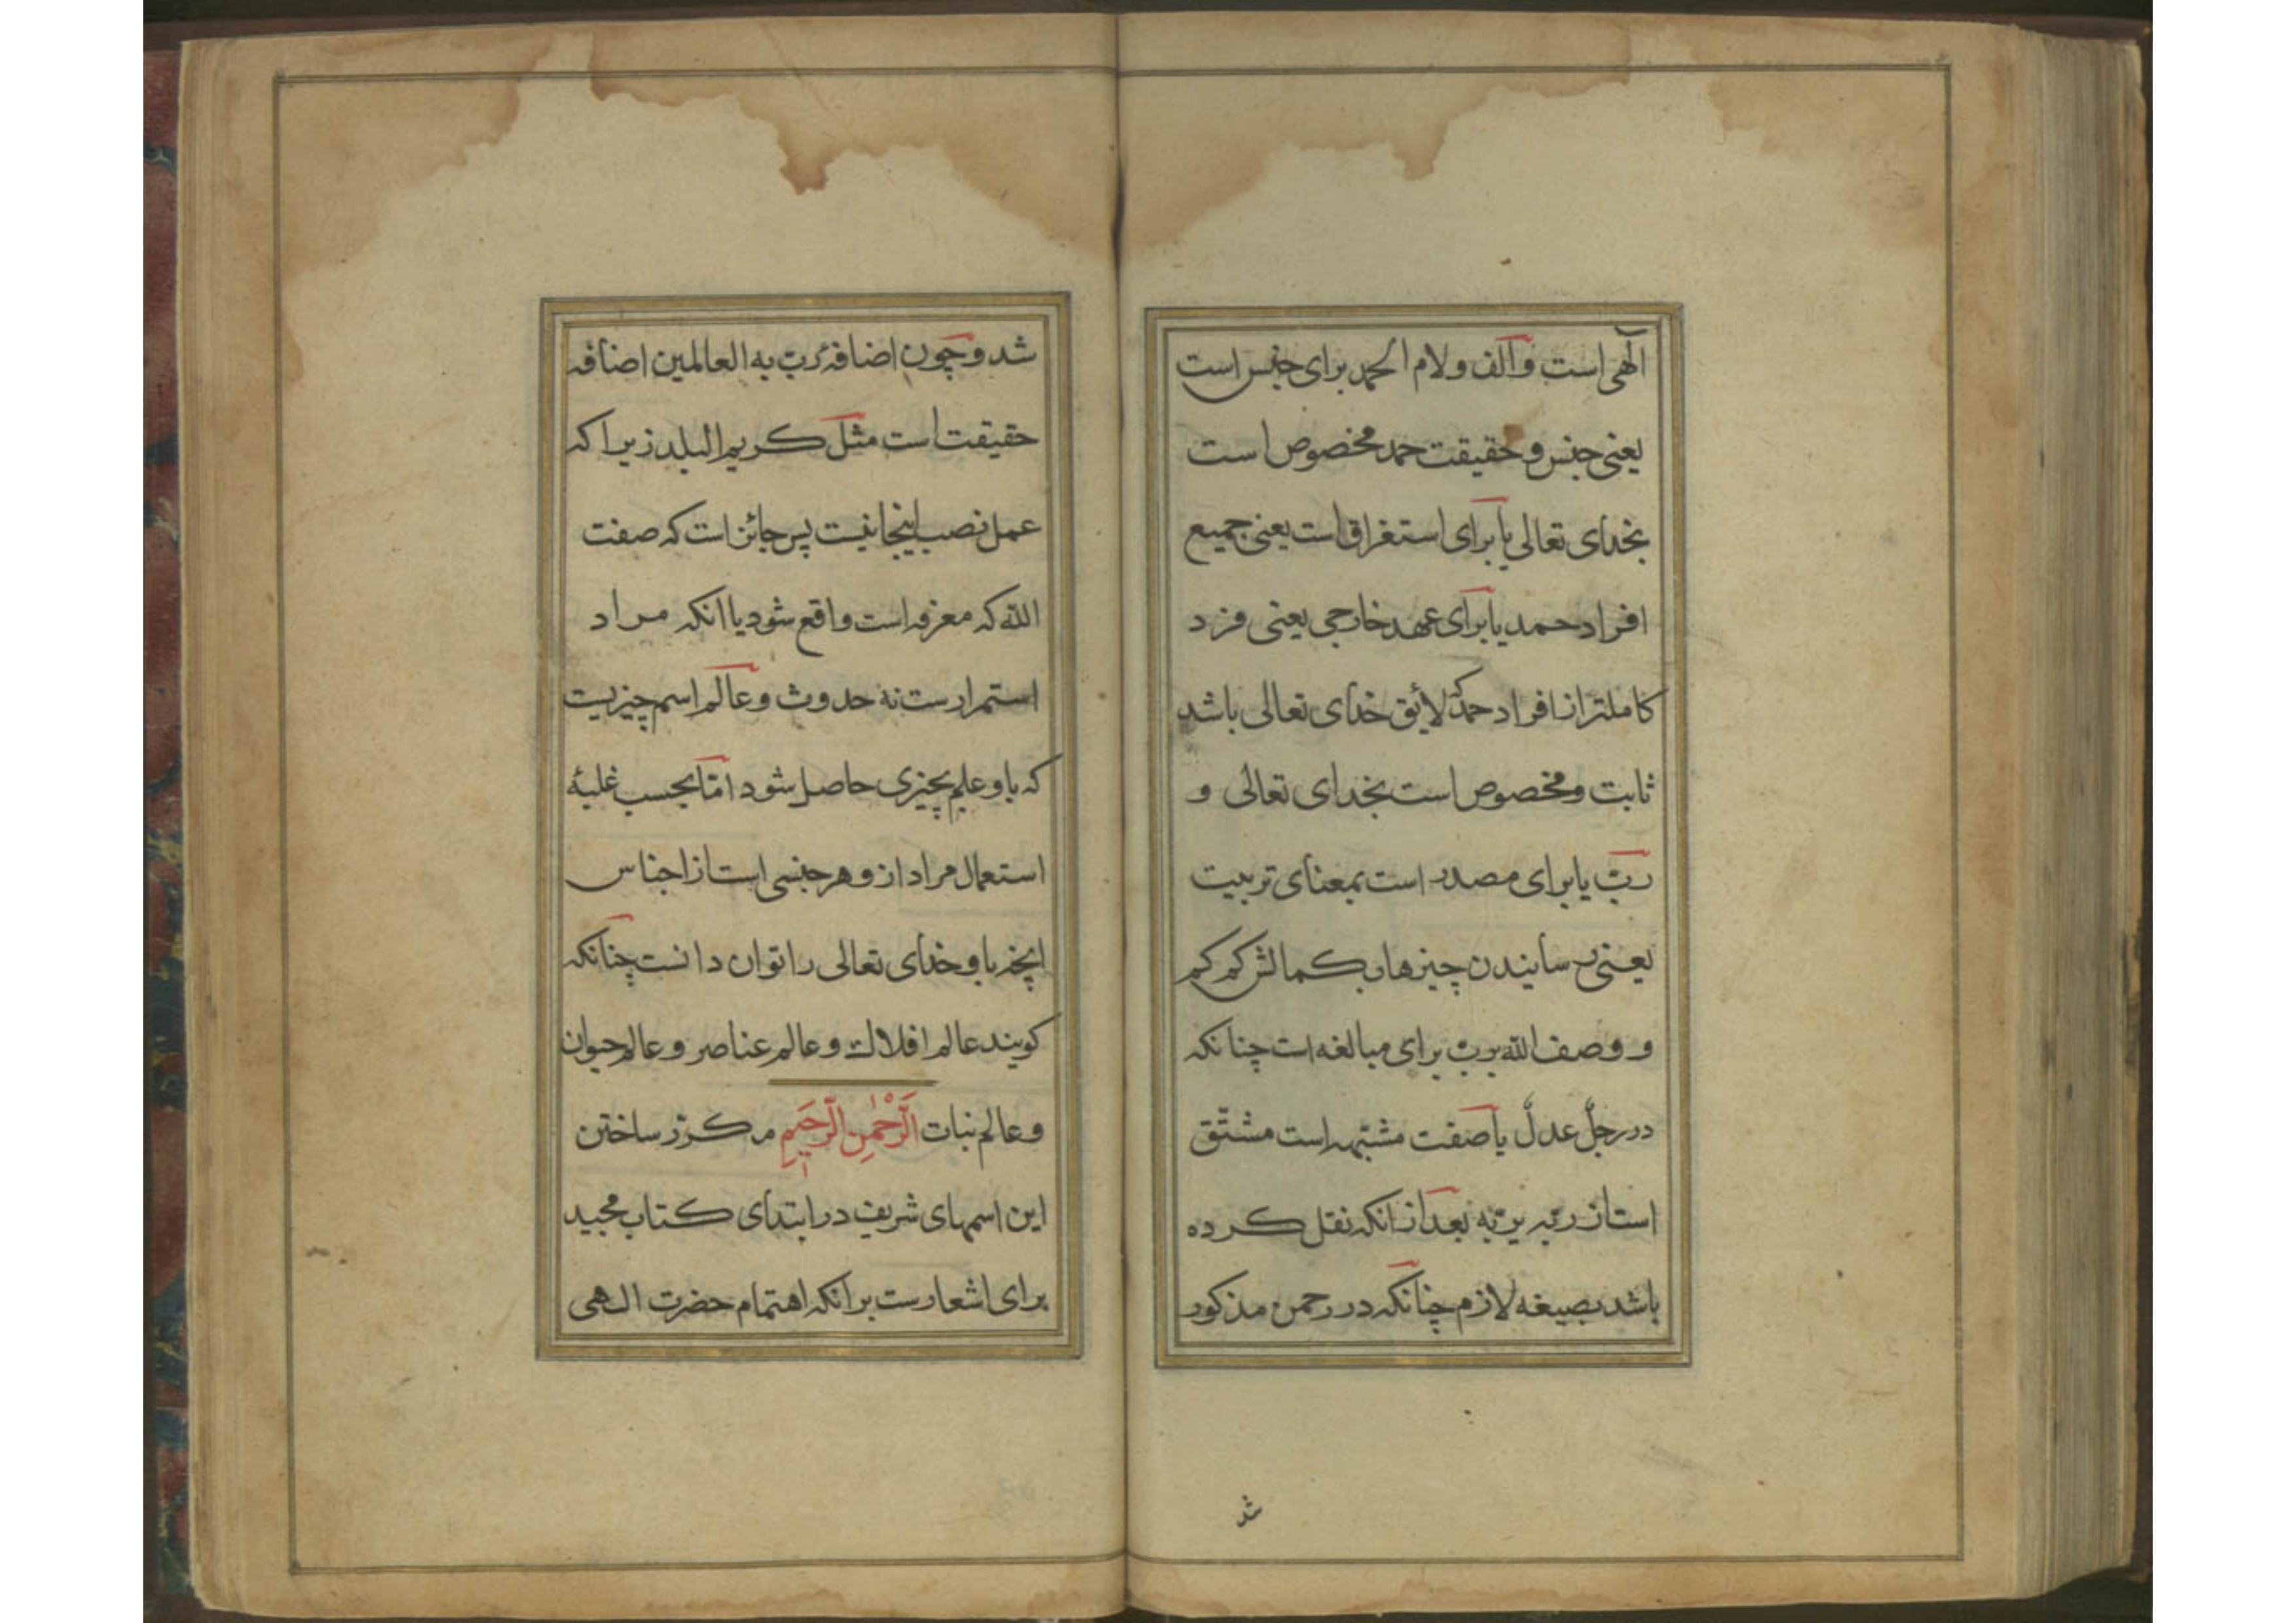 الٓهی است و الف و لام الحمد برای جنس است
یعنی جنس و حقیقت حمد مخصوص است
بخدای تعالی یا برای استغراق است یعنی جمیع
افراد حمد یا برای عهد خارجی یعنی فرد
کاملتر از افراد حمد که لائق خدای تعالی باشد
ثابت و مخصوص است بخدای تعالی و
ربّ یا برای مصدر است بمعنای تربیت
یعنی رسانیدن چیزها بکمالش کم کم
و وصف الله بربّ برای مبالغه است چنانکه
در رجلٌ عدلٌ یا صفت مشبّهه است مشتّق
است از ربّه یربّه بعد از انکه نقل کرده
باشد بصیغه لازم چنانکه در رحمن مذکور
شد
شد و چون اضافهٔ ربّ به العالمین اضافه
حقیقت است مثل کریم البلد زیرا که
عمل نصب اینجا نیست پس جائز است که صفت
الله که معرفه است واقع شود یا انکه مراد
استمرارست نه حدوث و عالم اسم چیزیست
که باو علم بچیزی حاصل شود امّا بحسب غلبهٔ
استعمال مراد ازو هر جنسی است از اجناس
انچه باو خدای تعالی را توان دانست چنانکه
کویند عالم افلاک و عالم عناصر و عالم حیوان
و عالم نبات الَرَّحْمٰنِ الَرَّحَیِمِ مکرّر ساختن
این اسمهای شریف در ابتدای کتاب مجید
برای اشعارست بر انکه اهتمام حضرت الهی